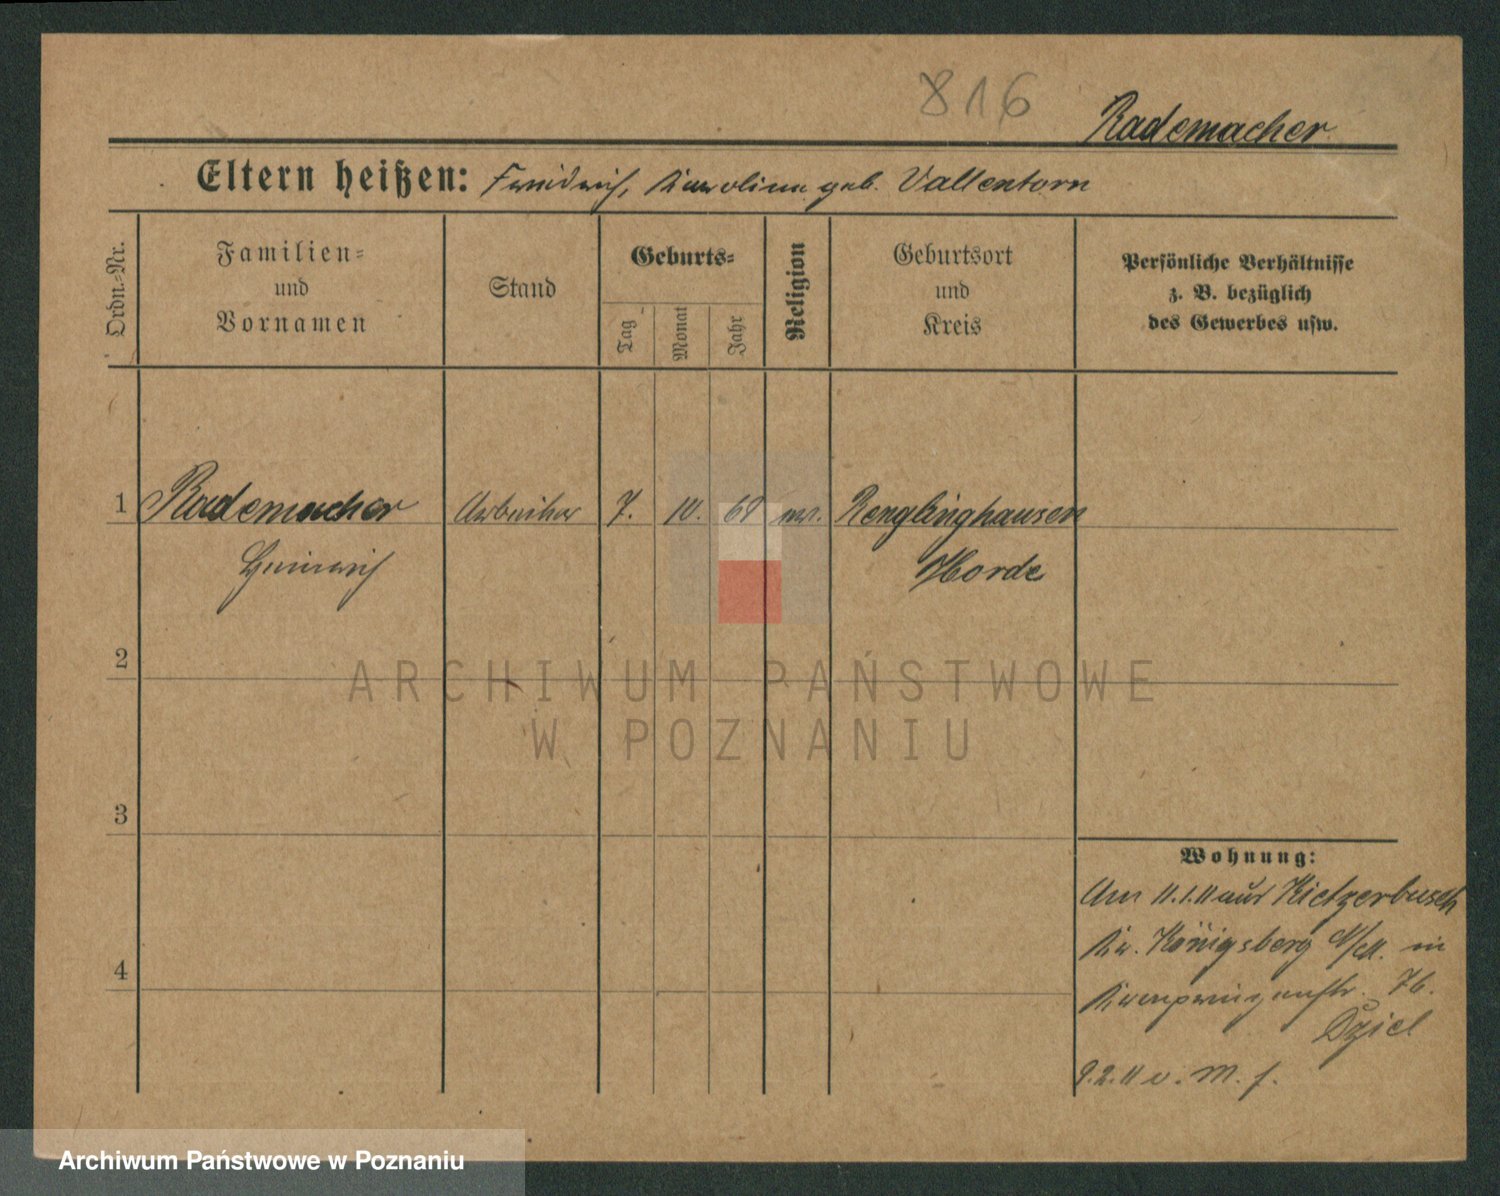 816
Rademacher
Eltern heißen: Friedrich, Karoline geb. Vallentorn
Ordn.-Nr.
Familien-
und
Vornamen
Stand
Geburts-
Tag
Monat
Jahr
Religion
Geburtsort
und
Kreis
Persönliche Verhältnisse
z. B. bezüglich
des Gewerbes usw.
1 Rademacher Arbeiter 7. 10. 68 Renglinghausen
Heinrich Horde
2
3
4
Wohnung:
Am 11.1.11 aus Kietzerbusch
Kr. Königsberg N/M. in
Kronprinzenstr. 76.
Dziel
9.2.11 v. M. f.
ARCHIWUM PAŃSTWOWE
W POZNANIU
Archiwum Państwowe w Poznaniu